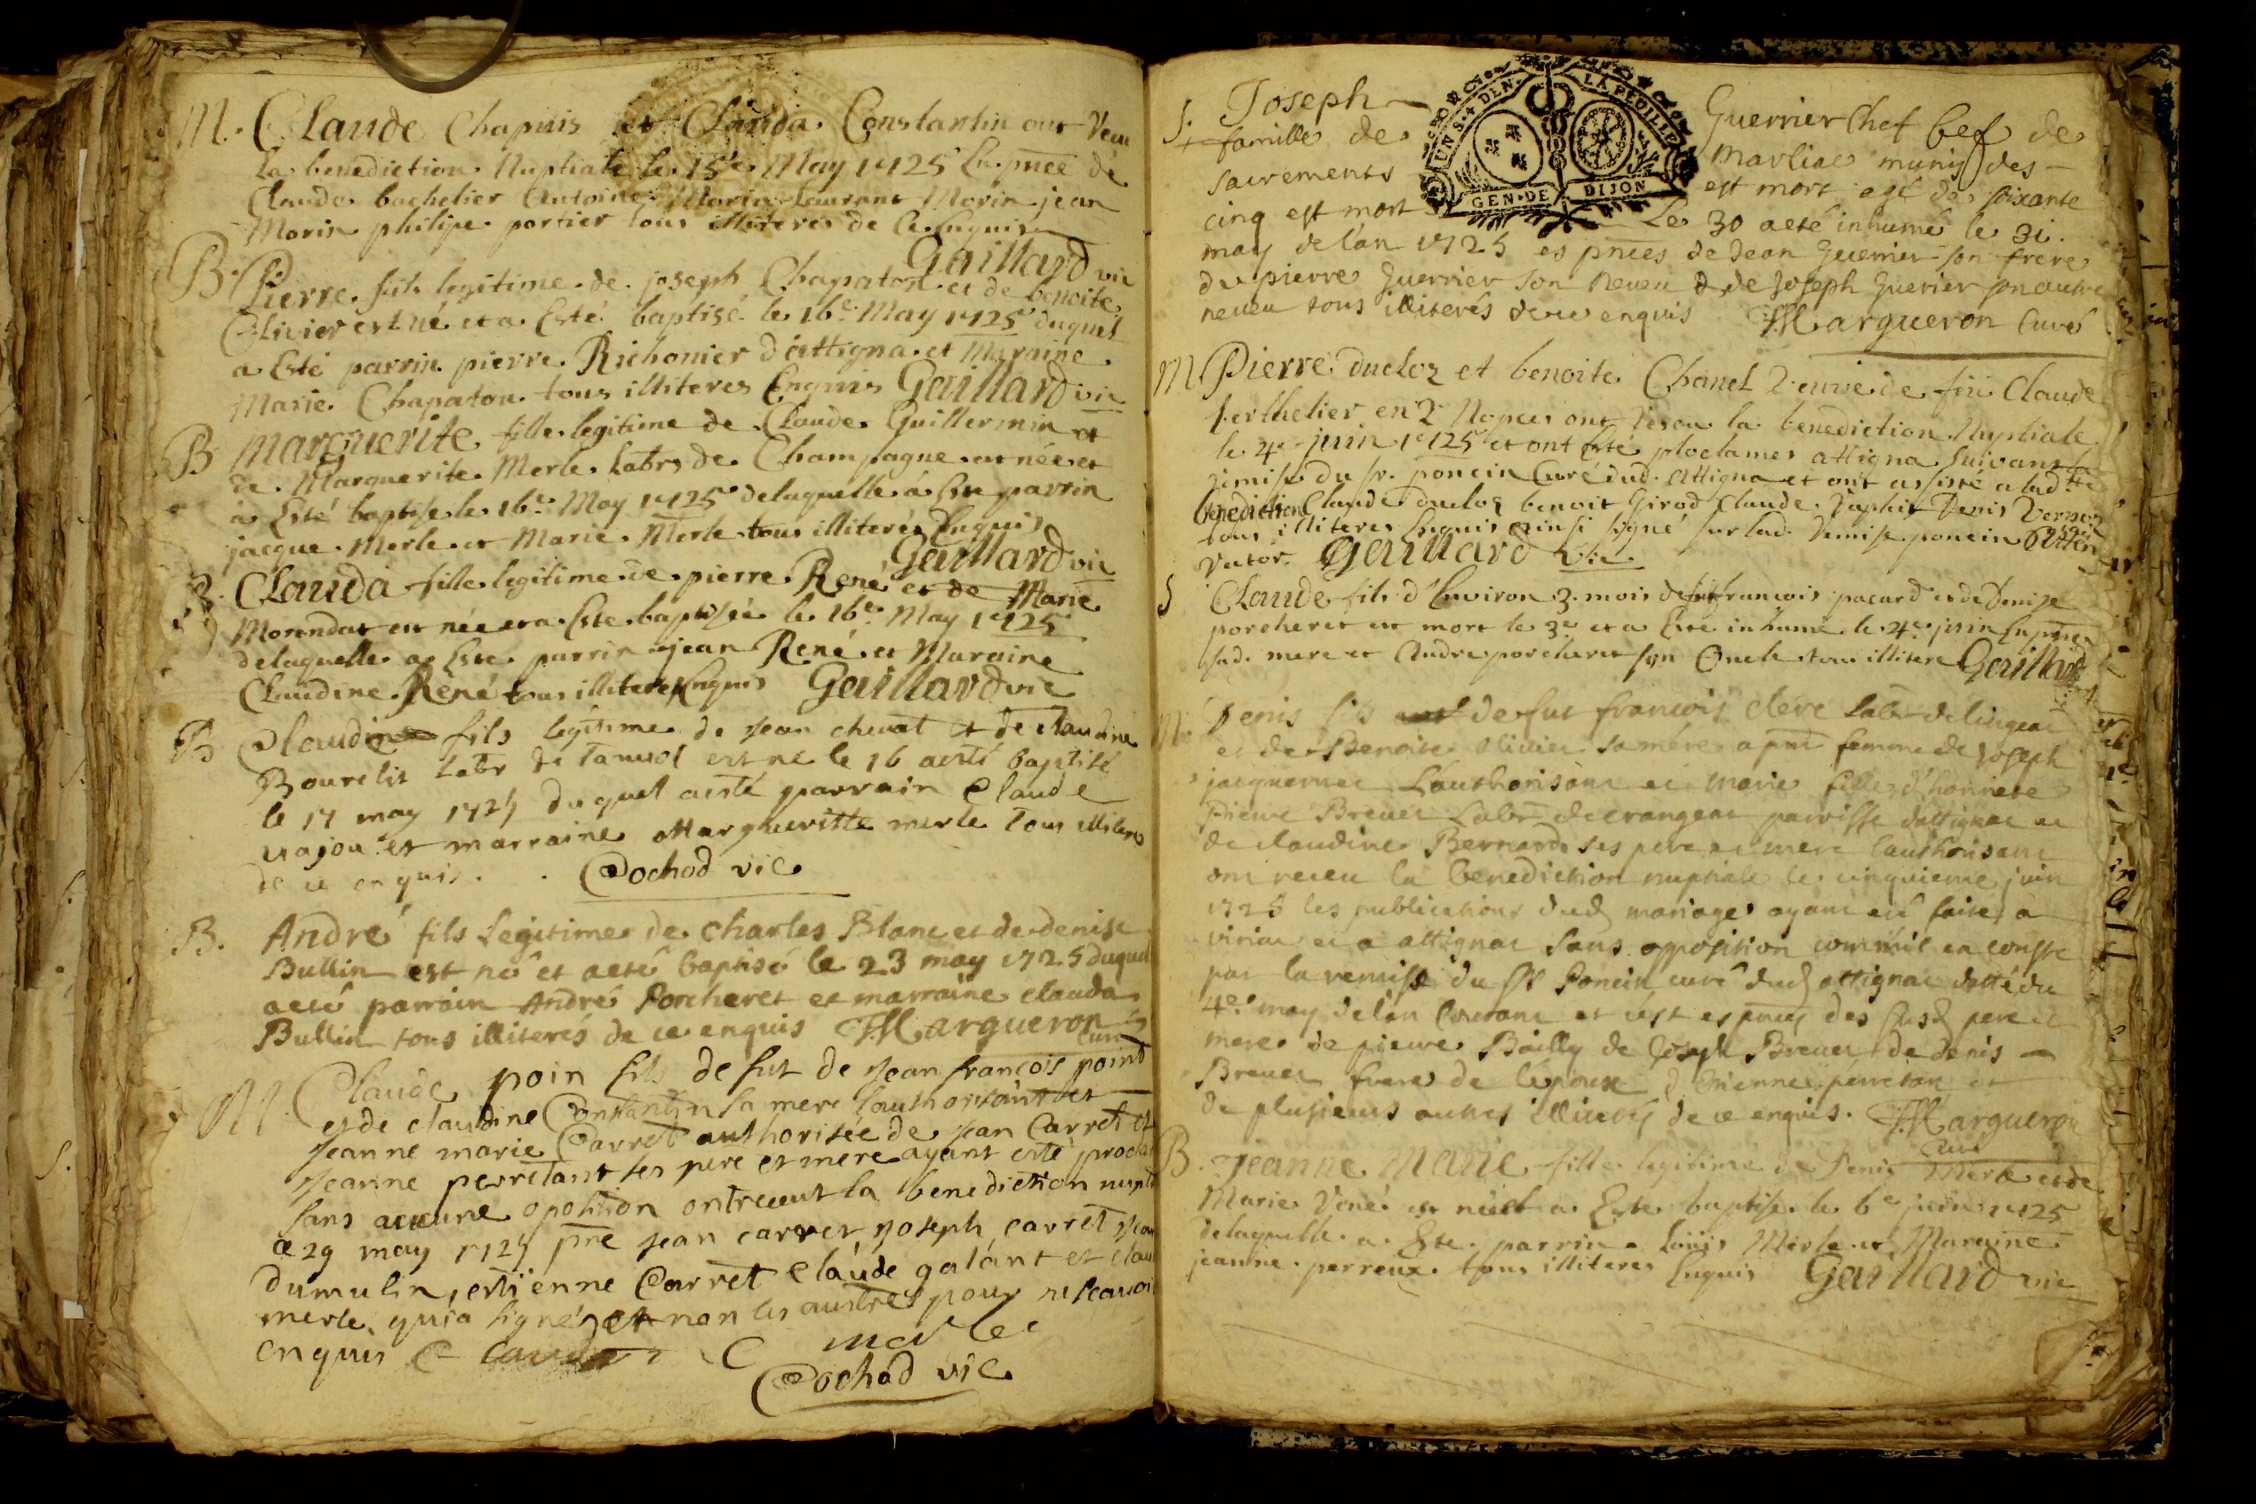 M. Claude Chapuis et Clauda Constantin ont Veu
la benediction Nuptiale le 15e May 1725 En pnce de
Claude bachelier Antoine Morin Laurent Morin jean
Morin philipe portier tous illiteres de Ce Enquis
Gaillard vic
B. Pierre fils legitime de joseph Chapaton et de benoite
Olivier est né et a Esté baptisé le 16e May 1725 duquel
a Esté parrin pierre Richonier d'attigna et Maraine
Marie Chapaton tous illiteres Enquis Gaillard vic
B Marguerite fille legitime de Claude Guillermin et
de Marguerite Merle Labrs de Champagne est née et
a Esté baptise le 16e May 1725 delaquelle a Esté parrin
jacque Merle et Marie Merle tous illiterés Enquis
Gaillard vic
B. Clauda fille legitime de pierre René et de Marie
Morandat est née et a Este baptisée le 16e May 1725
delaquelle a Este parrin jean René et Maraine
Claudine René tous illiteres Enquis Gaillard vic
B Claudine fils legitime de jean chevat et de claudine
Bourelit Labr de tanuol est né le 16 aesté baptisé
le 17 may 1725 duquel aesté parrain Claude
et marraine Margueritte merle tous illiteres
de ce enquis. Cochod vic
B. André fils Legitime de charles Blanc et de denise
Bullin est né et aeté baptisé le 23 may 1725 duquel
aeté parrain André Porcheret et marraine clauda
Bullin tous illiterés de ce enquis JMargueron
curé
M. Claude poin fils de fut de jean francois point
et de claudine Constantin sa mere l'authorisant et
jeanne marie Carret authorisée de jean Carret et
jeanne perretant ses pere et mere ayant esté procla
sans aucune oposition ont receut la benediction nupt
ce 29 may 1725 pnt jean carret, joseph carret jean
dumulin, estienne Carret claude galant et clau
merle, qui a signé et non les austres pour ne scavoi
enquis C Claude C merle
Cochod vic
S. Joseph Guerrier chef bef de
famille de Marliac munis des
sacrements est mort agé de soixante
cinq est mort Le 30 aeté inhumé le 31.
may de l'an 1725 es pnces de Jean Guerrier son frere
du pierre Guerrier son neveu & de Joseph Guerier son autre
neveu tous illiterés de ce enquis JMargueron Curé
M Pierre ducloz et benoite Chanel Veuve de fû Claude
berthelier en 2e Nopces ont Receu la benediction Nuptiale
le 4e juin 1725 et ont Esté ploclames attigna suivant la
remise du sr. poncin Curé dud. Attigna et ont assisté a ladtte
benediction Claude ducloz benoit Girod Claude Denis Vernoz
tous illiteres Enquis ainsi signé sur lad. Remise poncin
Gaillard vic
S Claude fils d'Environ 3. mois de fû francois pacard et de Denise
porcheret est mort le 3e et a Esté inhumé le 4e juin En pnce
sad. mere et Andre porcheret son Oncle tous illitere Gaillard
M. Denis fils de fut francois clerc Labr de lingeat
et de Benoite olivier sa mére a pnt femme de joseph
jacquemet L'authorisant et marie fille d'honnete
Pierre Brevet Labr de crangeac parroisse d'attignac et
de claudine Bernard ses pere et mere l'authorisant
ont receu la benediction nuptiale le cinquieme juin
1725 les publications dud mariage ayant eté faites a
viriac et a attignac sans opposition comme il en conste
par la remise du Sr Poncin curé dud attignac datté du
4e may de l'an Courant et c'est es pnces des susd pere et
mere de pierre Bailly de Joseph Brevet de denis
Brevet freres de l'epouse d'Etienne perretan et
de plusieurs autres illiterés de ce enquis. JMargueron
curé
B. jeanne Marie fille legitime de Denis Merle et de
Marie René est née et a Este baptise le 6e juin 1725
delaquelle a Este parrin Loüis Merle et Maraine
jeanne perreux tous illiteres Enquis Gaillard vic
UNS. 4 DEN. LA FEÜILLE
GEN. DE DIJON